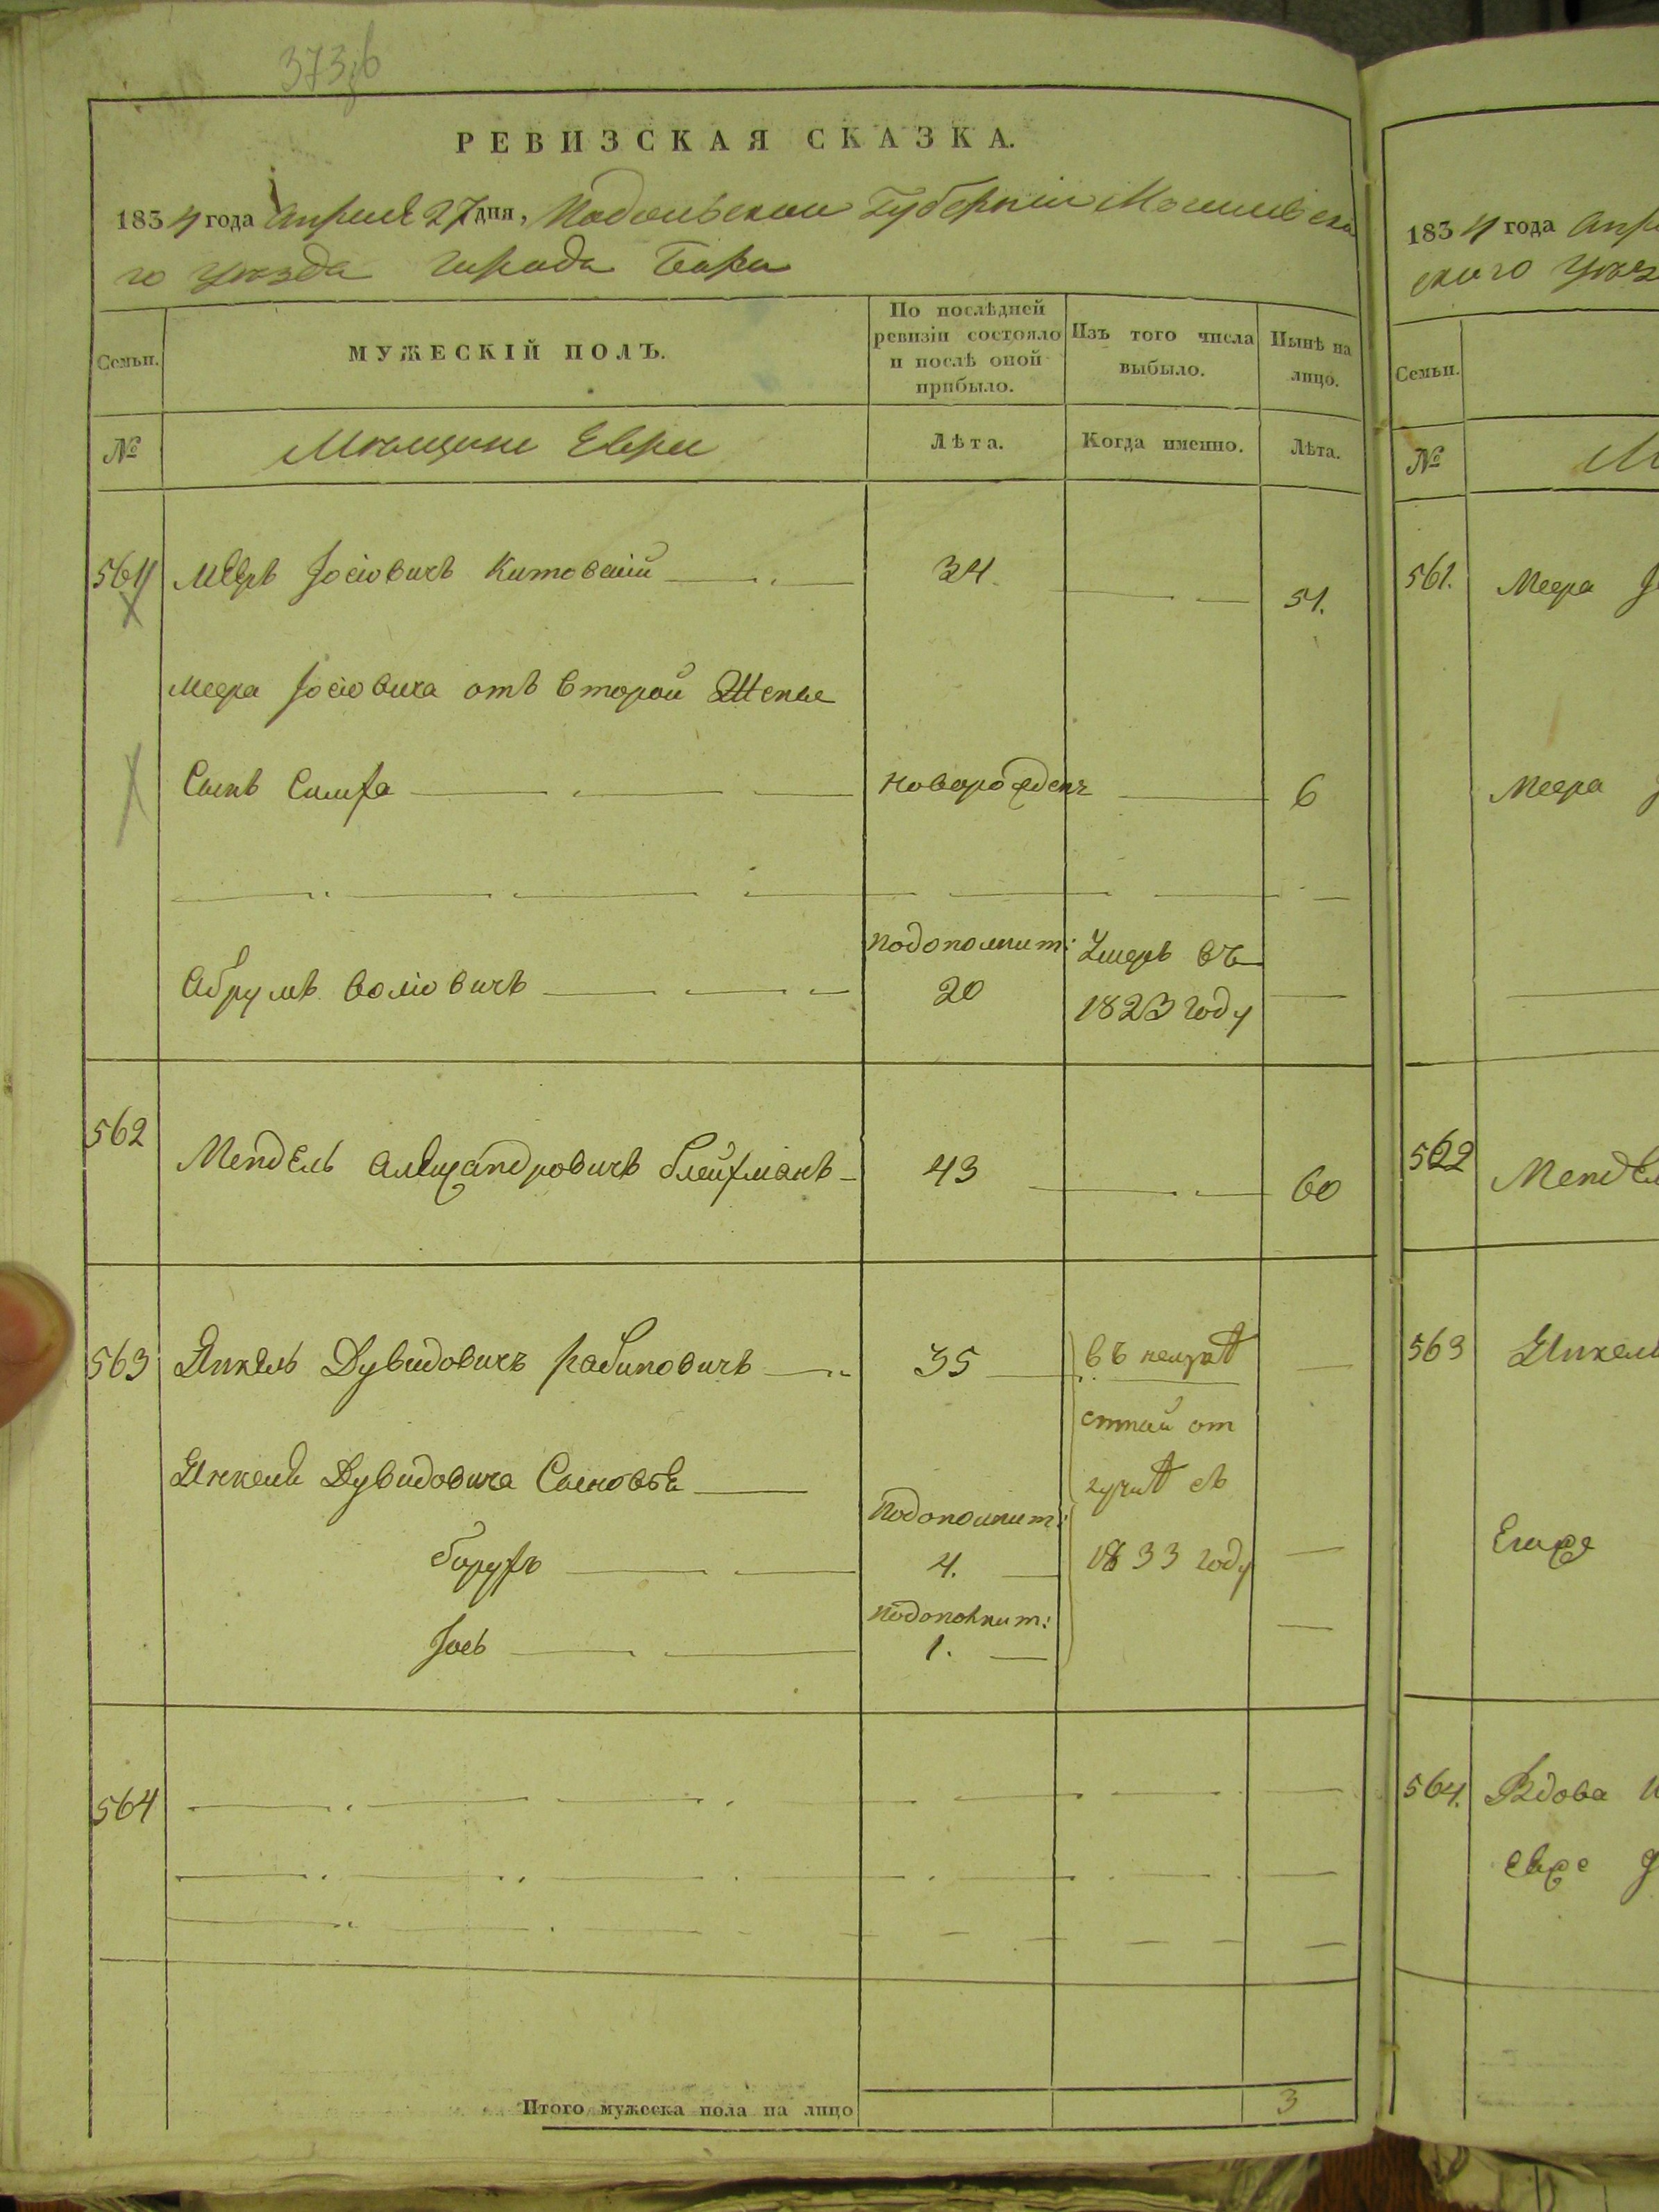 373зв
РЕВИЗСКАЯ СКАЗКА.
1834 года Апреля 27 дня, Подольской Губерніи Могилевска
го уѣзда города Бара
Семьи.
МУЖЕСКІЙ ПОЛЪ.
По послѣдней ревизіи состояло и послѣ оной прибыло.
Изъ того числа выбыло.
Нынѣ на лицо.
№
Мѣщане Евреи
Лѣта.
Когда именно.
Лѣта.
561 Меерь Іосіовичь Китовскій 34. 51.
Меера Іосіовича отъ второй Жены
Сынъ Симха новорожденъ 6
Абрумъ Волїовичъ подополнит: 20 Умеръ въ 1823 году
562 Мендель Александровичъ Клейфманъ 43 60
563 Янкель Дувидовичъ Рабиновичъ 35 въ неизвѣ
стной от
Янкеля Дувидовича Сыновья
лучкѣ съ
Борухъ подополнит: 4. 1833 году
Іось подополнит: 1.
564
Итого мужеска пола на лицо 3
1834 года Апр
ского уѣз
Семьи.
№
М
561. Меера
Меера
562 Мендел
563 Янкел
Егоже
564. Вдова